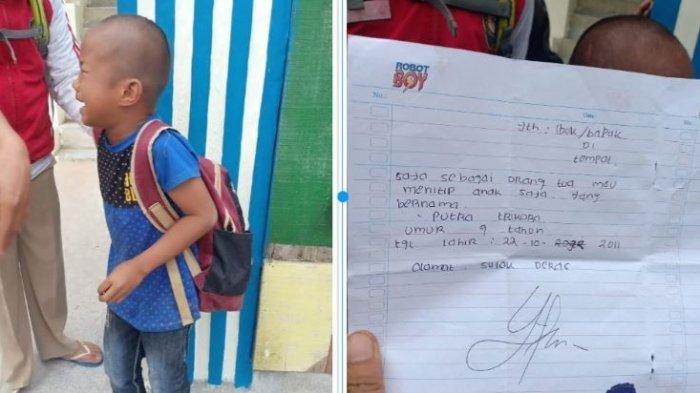 ROBOT
BOY
No.:
Date:
Yth : Ibuk/bapak
DI
tempat.
saya sebagai orang tua mau
menitip anak saya yang
bernama.
PUTRA TRIKORA
umur 9 tahun
tgl lahir : 22-10- 2011
Alamat. SUSOK DERAS